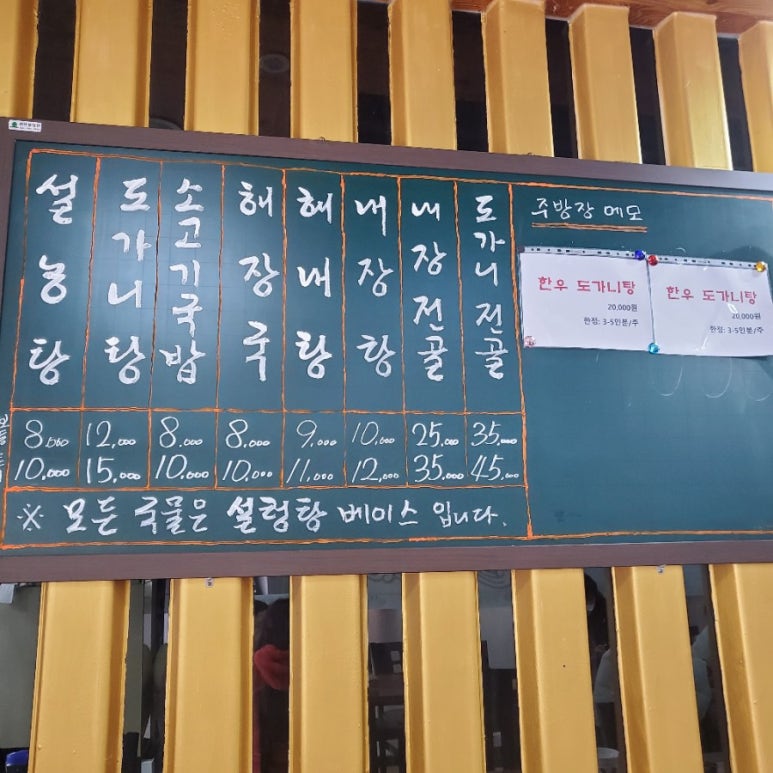 설농탕
도가니탕
소고기국밥
해장국
해내탕
내장탕
내장전골
도가니전골
8,000 12,000 8,000 8,000 9,000 10,000 25,000 35,000
10,000 15,000 10,000 10,000 11,000 12,000 35,000 45,000
※ 모든 국물은 설렁탕 베이스 입니다.
주방장 메모
한우 도가니탕
20,000원
한정: 3-5인분/주
한우 도가니탕
20,000원
한정: 3-5인분/주